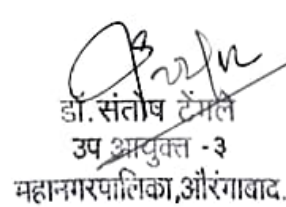 डॉ.संतोष टेंगले
उप आयुक्त -३
महानगरपालिका,औरंगाबाद.